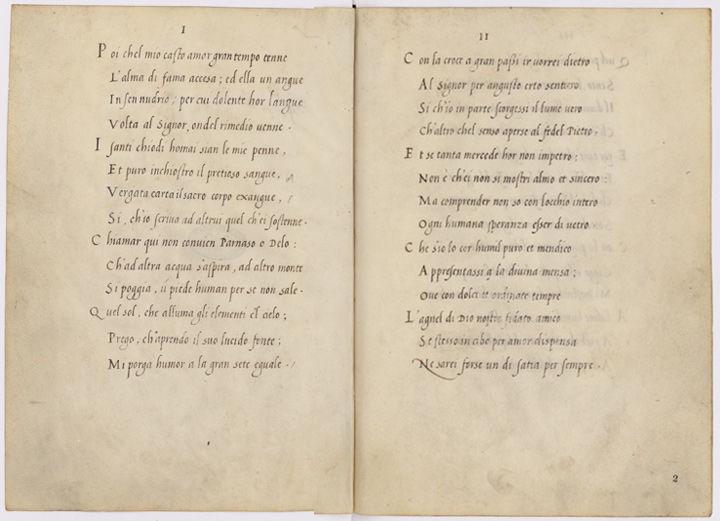 I
Poi chel mio casto amor gran tempo tenne
L'alma di fama accesa; ed ella un angue
In sen nudrio, per cui dolente hor langue
Volta al Signor, ondel rimedio venne.
I santi chiodi homai sian le mie penne,
Et puro inchiostro il pretioso sangue,
Vergata carta il sacro corpo exangue,
Si, ch'io scrivo ad altrui quel ch'ei sostenne.
Chiamar qui non convien Parnaso o Delo:
Ch'ad altra acqua s'aspira, ad altro monte
Si poggia, u piede human per se non sale.
Quel sol, che alluma gli elementi e'l cielo;
Prego, ch'aprendo il suo lucido fonte;
Mi porga humor a la gran sete eguale.
II
Con la croce a gran passi ir vorrei dietro
Al Signor per angusto erto sentiero
Si ch'io in parte scorgessi il lume vero
Ch'altro chel senso aperse al fedel Pietro.
Et se tanta mercede hor non impetro;
Non è ch'ei non si mostri almo et sincero:
Ma comprender non so con l'occhio intero
Ogni humana speranza esser di vetro.
Che s'io lo cor humil puro et mendico
Appresentassi a la divina mensa;
Ove con dolci et ordinate tempre
L'agnel di Dio nostro fidato amico
Se stesso in cibo per amor dispensa
Ne sarei forse un di satia per sempre.
2